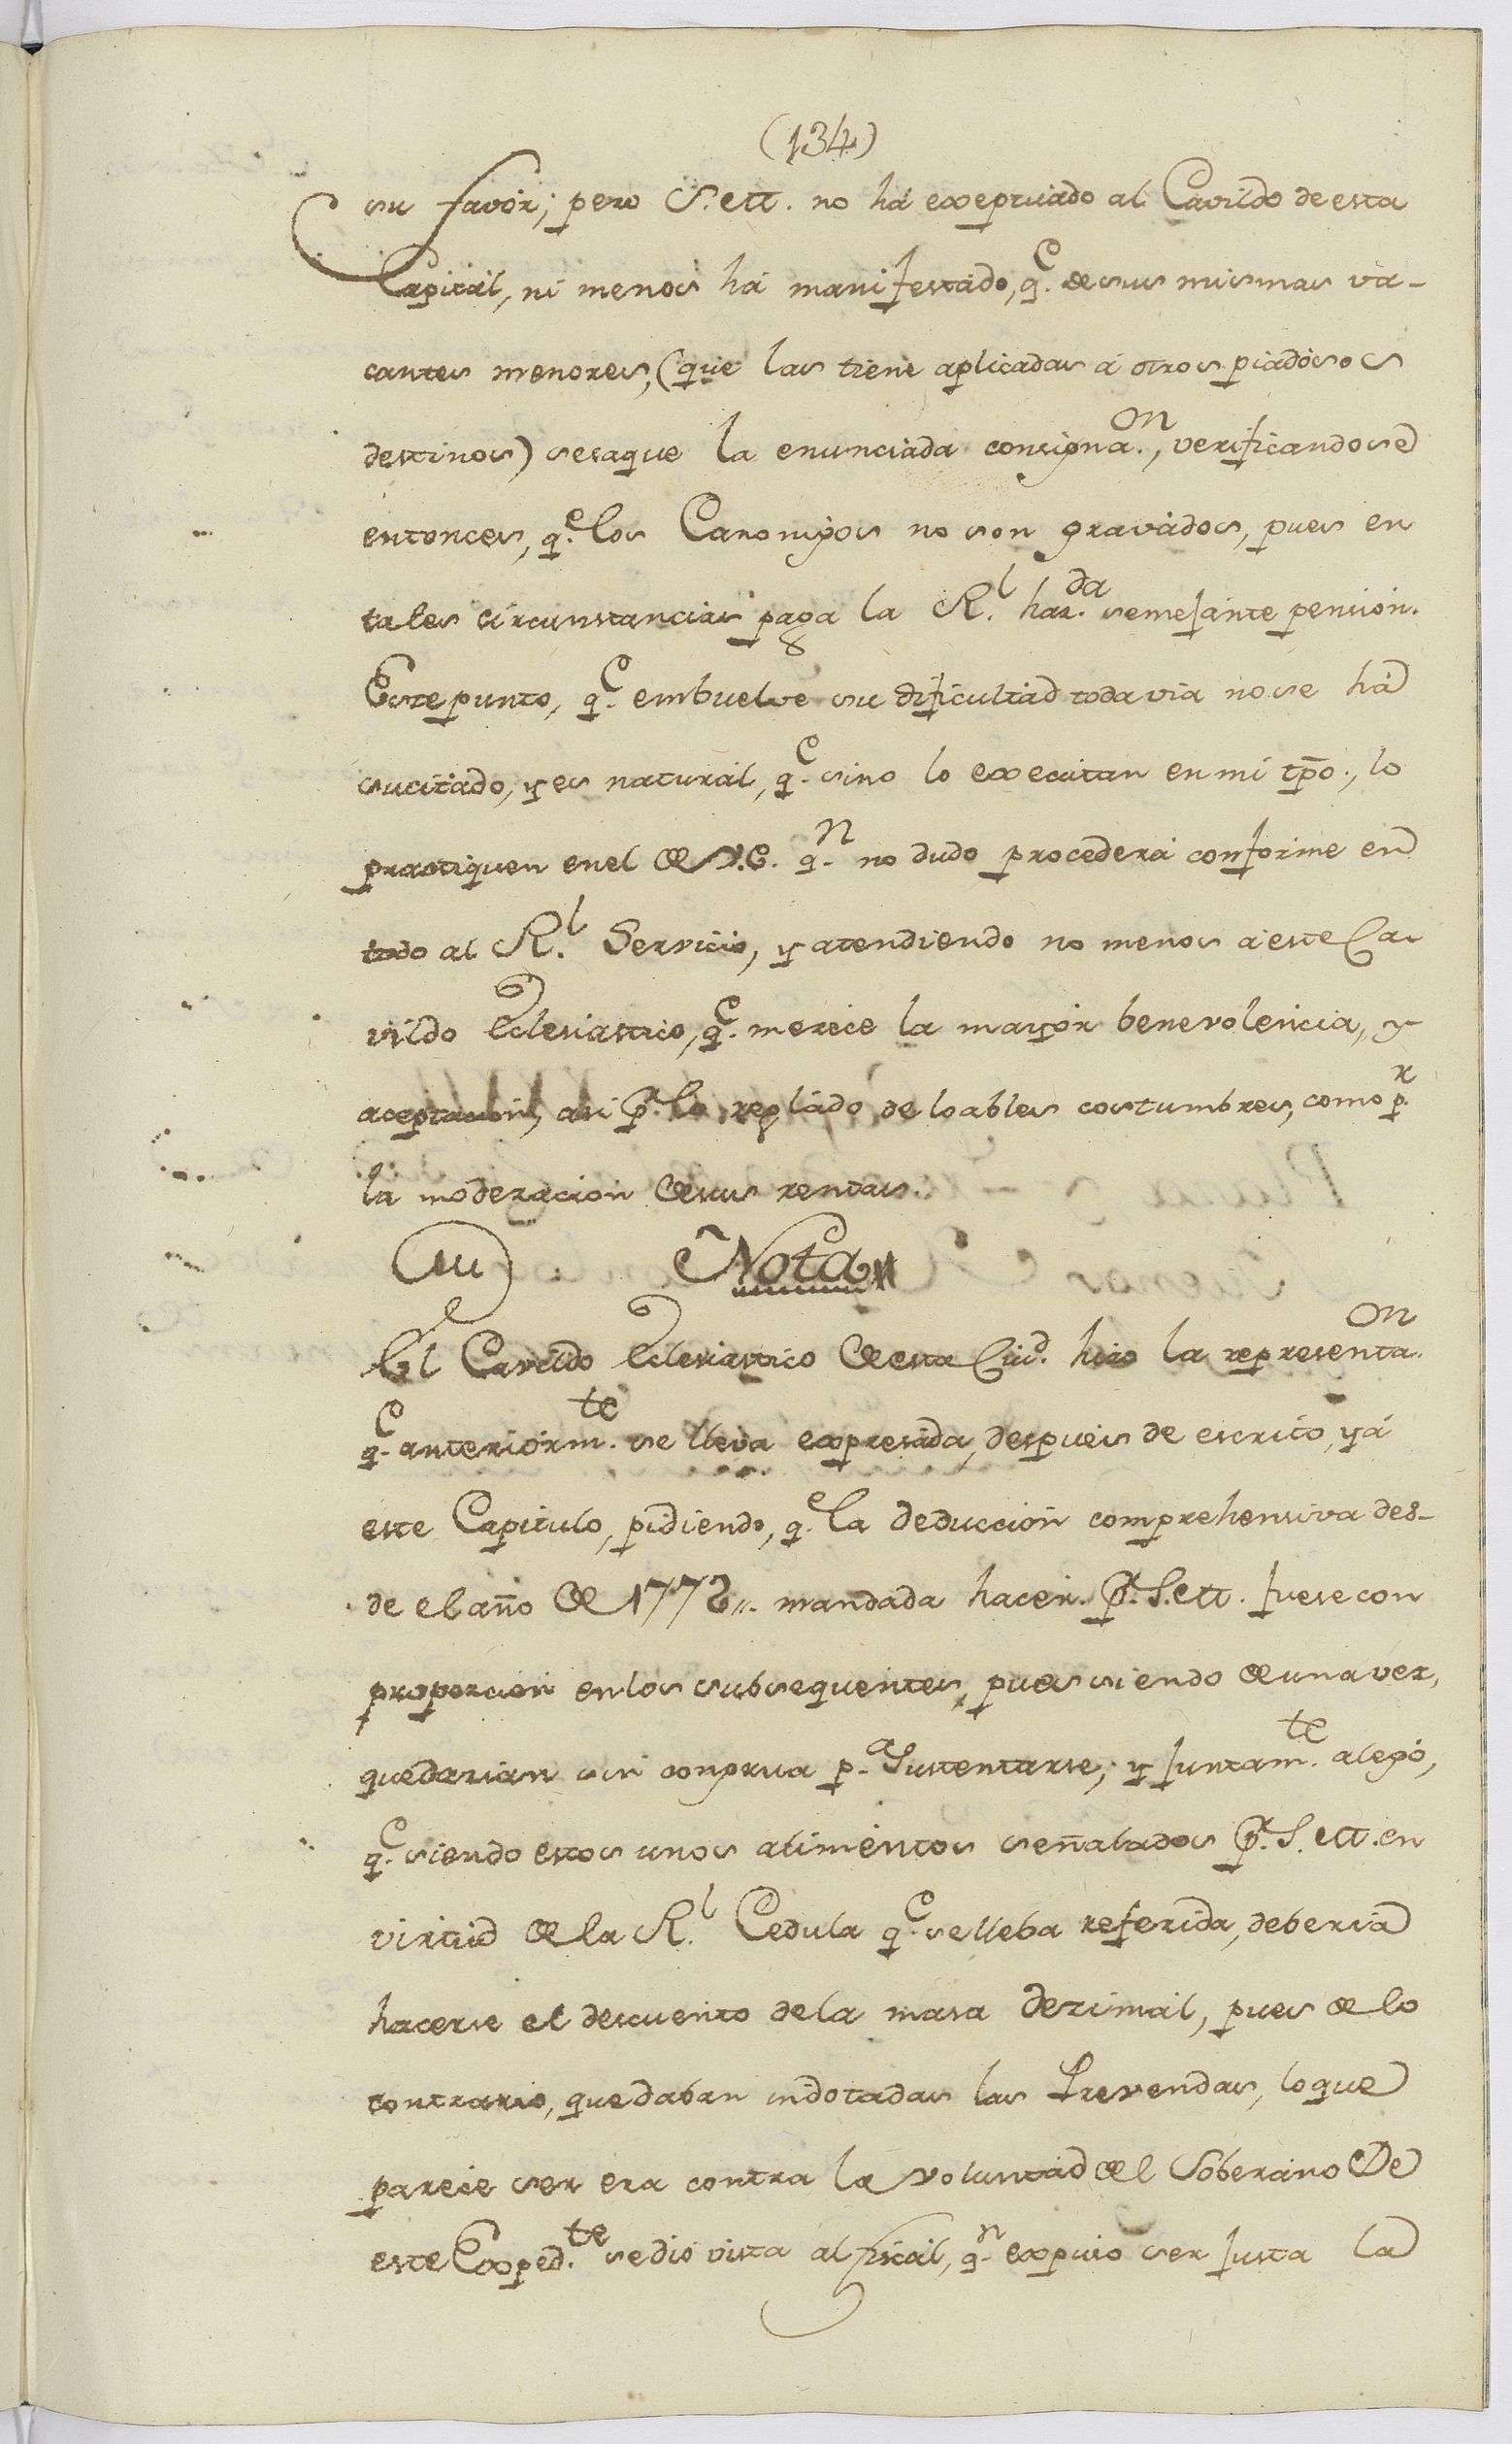 (134)
su favor; pero S.M. no há exceptuado al Cavildo de esta
Capital, ni menos há manifestado, q.e de sus mismas va-
cantes menores, (que las tiene aplicadas á otros piadosos
destinos) se saque la enunciada consigna.on, verificandose
entonces, q.e los Canonigos no son gravados, pues en
tales circunstancias paga la R.l haz.da semejante pension.
Este punto, q.e embuelve su dificultad todavia no se há
sucitado, y es natural, q.e sino lo executan en mi tpo., lo
practiquen en el de V.E. q.n no dudo procederá conforme en
todo al R.l Servicio, y atendiendo no menos á este Ca-
vildo Eclesiastico, q.e merece la mayor benevolencia, y
aceptacion, asi p.r lo reglado de loables costumbres, como p.r
la moderacion de sus rentas.
Nota
El Cavildo Eclesiastico de esta Ciu.d hizo la representa.on
q.e anteriorm.te se lleva expresada, despues de escrito, yá
este Capitulo, pidiendo, q.e la deduccion comprehensiva des-
de el año de 1772,,. mandada hacer p.r S.M. fuese con
proporcion en los subsequentes, pues siendo de una vez,
quedarian sin congrua p.a sustentarse; y juntam.te alegó,
q.e siendo estos unos alimentos señalados p.r S.M. en
virtud de la R.l Cedula q.e se lleba referida, deberia
hacerse el descuento de la masa dezimal, pues de lo
contrario, quedaban indotadas las Prevendas, lo que
parece ser era contra la voluntad del Soberano De
este Exped.te se dió vista al fiscal, q.n expuso ser justa la